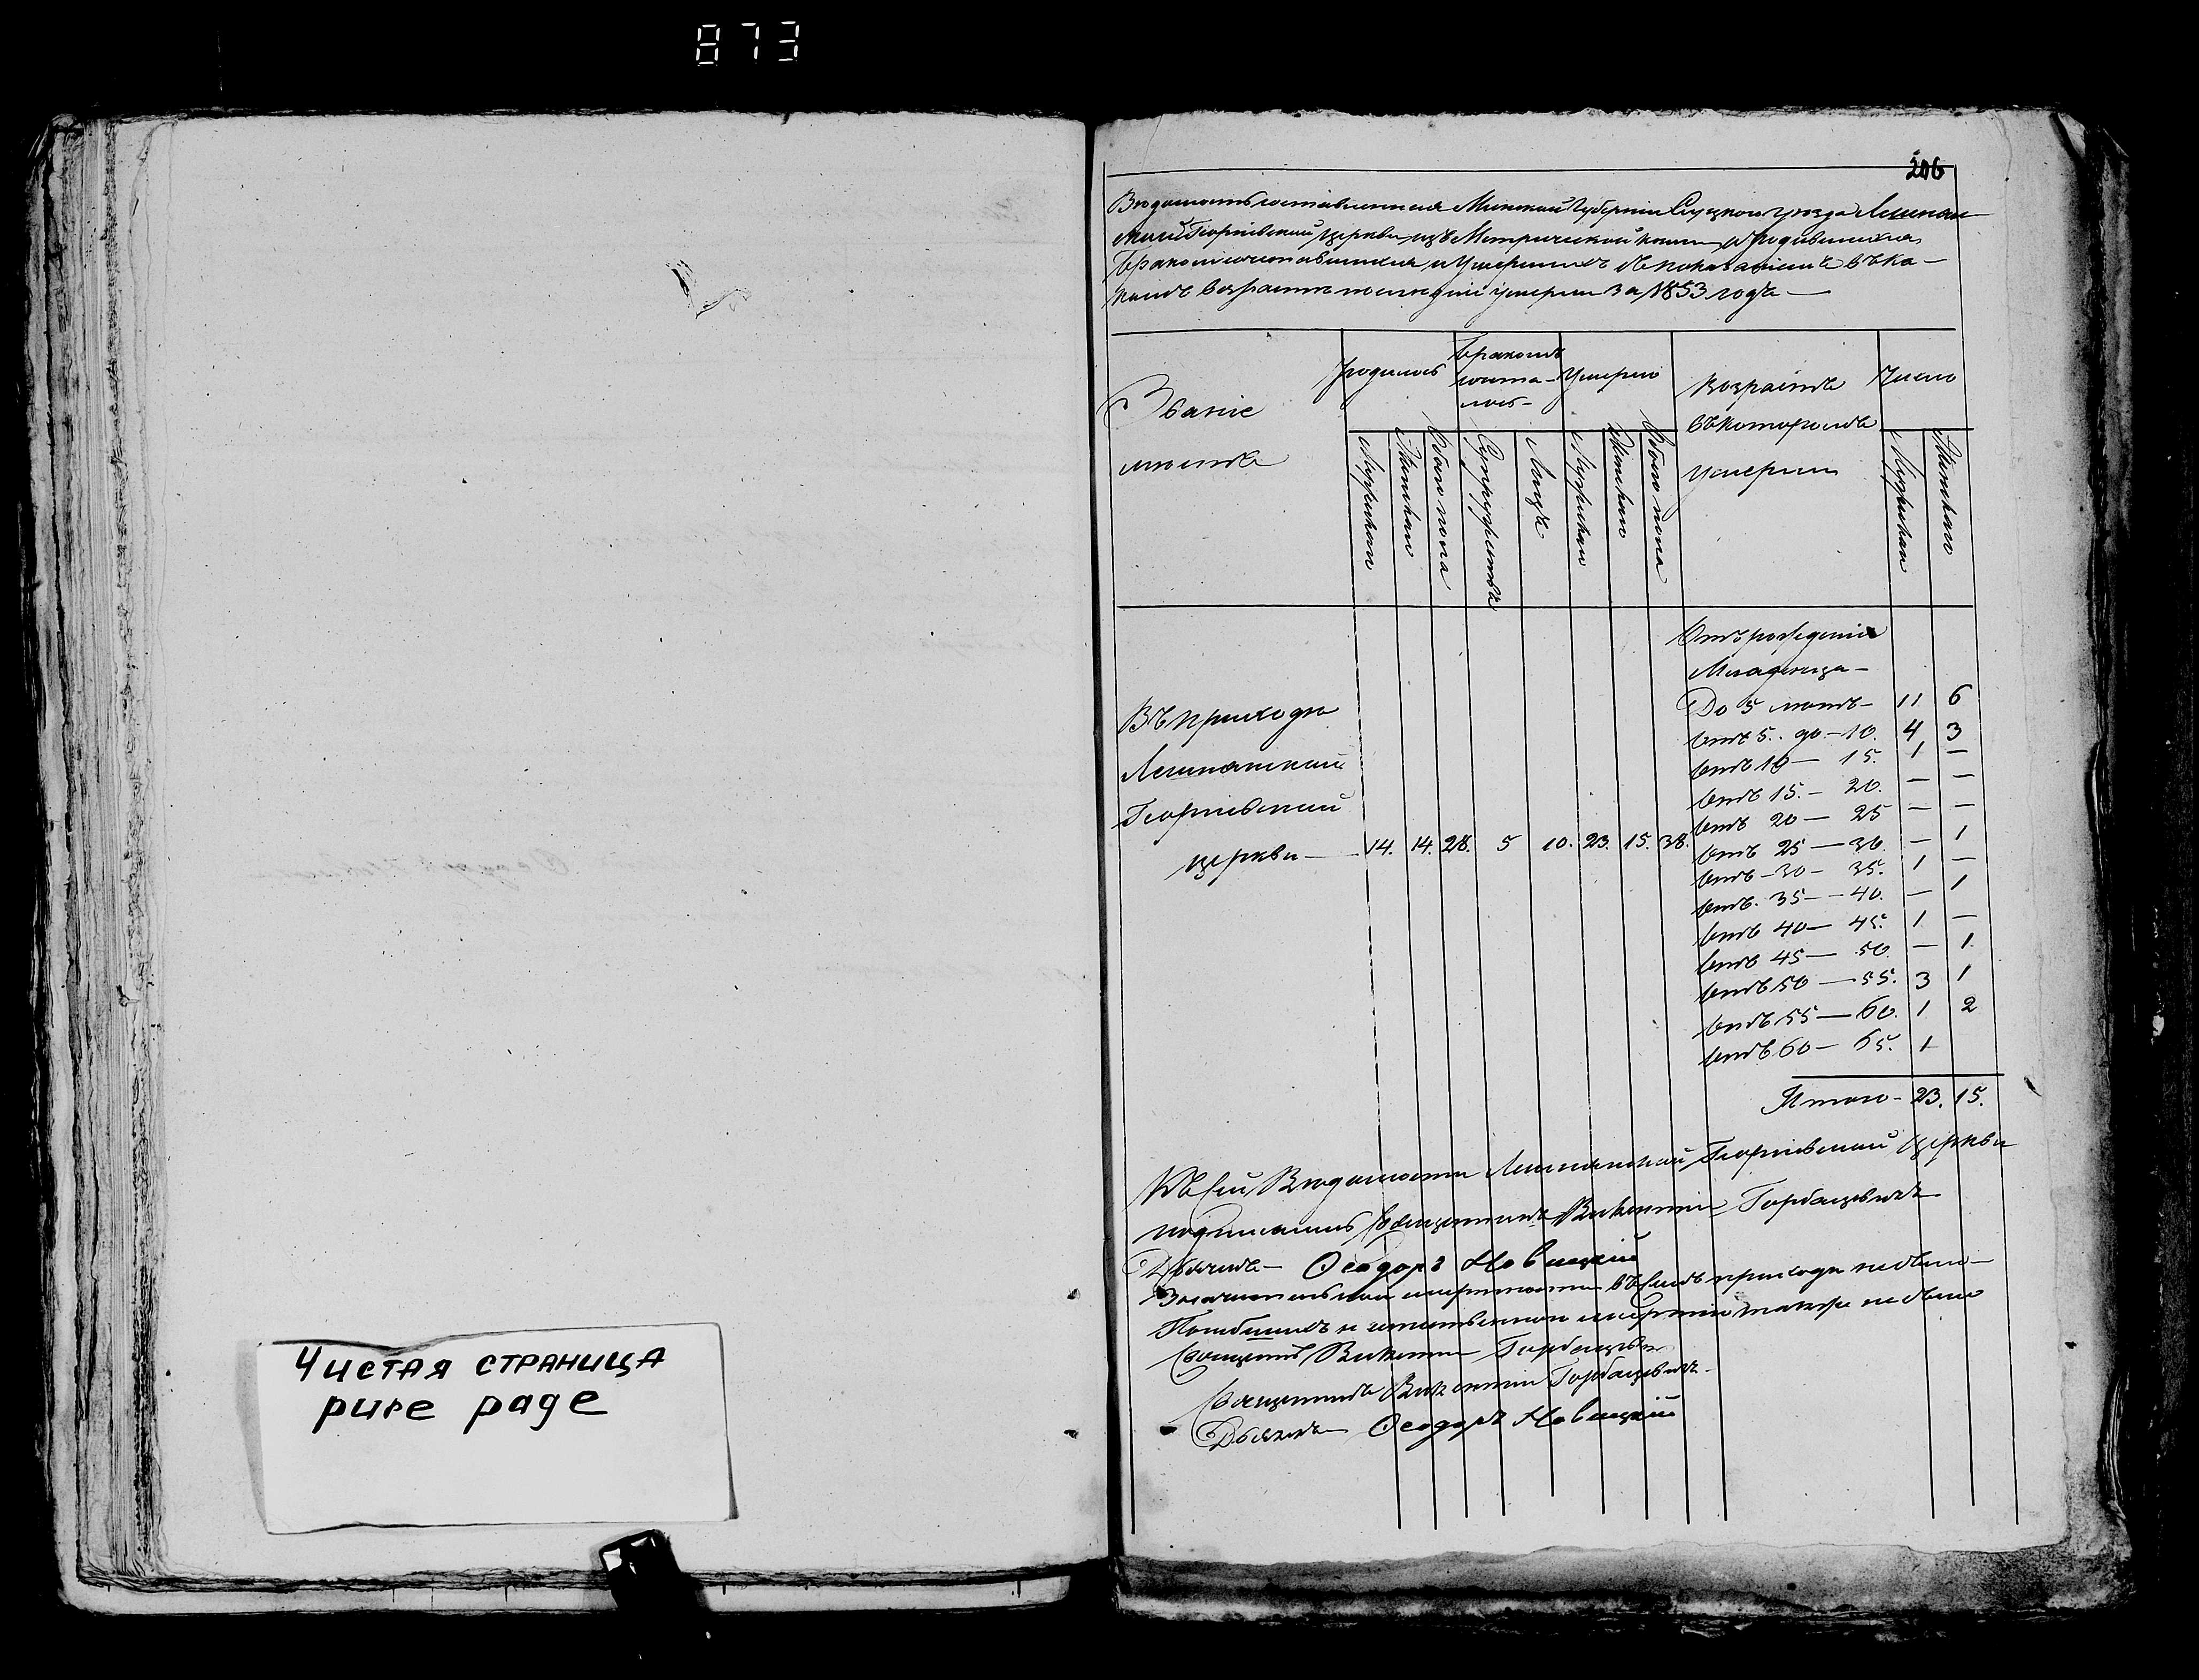 873
206
Вѣдомость составленная Минской Губерніи Слуцкого уѣзда Лешнян-
ской Георгіевской церкви изъ Метрической книги о родившихся,
бракомъ сочетавшихся и умершихъ съ показаніемъ въ ка-
комъ возрастѣ последніе умерли за 1853 годъ —
Званіе
мѣстъ
родилось
бракомъ
сочета-
лось
Умерло
Возрастъ
въ которомъ
умерли
Число
Мужескаго
Женскаго
Обоего пола
Супружествъ
Лицъ
Мужескаго
Женскаго
Обоего пола
Мужескаго
Женскаго
Въ приходѣ
Лешнянской
Георгіевской
церкви — 14. 14. 28. 5 10. 23. 15. 38.
Отъ рожденія
Младенца —
До 5 лѣтъ — 11 6
Отъ 5. до — 10. 4 3
Отъ 10 — 15. 1 —
Отъ 15. — 20. — —
Отъ 20 — 25 — —
Отъ 25 — 30. — 1
Отъ — 30 — 35. 1 —
Отъ. 35 — 40. — 1
Отъ 40 — 45. 1 —
Отъ 45 — 50. — 1
Отъ 50 — 55. 3 1
Отъ 55 — 60. 1 2
Отъ 60 — 65. 1
Итого — 23. 15.
Къ сей Вѣдомости Лешнянской Георгіевской Церкви
подписались Священникъ Викентій Горбацевичъ
Дьячекъ — Ѳеодоръ Новицкій
Значительной смертности въ семъ приходѣ не было —
Погибшихъ не естественною смертію также не было
Священникъ Викентій Горбацевичъ
Священникъ Викентій Горбацевичъ —
Дьячекъ — Ѳеодоръ Новицкій
Чистая страница
pure page